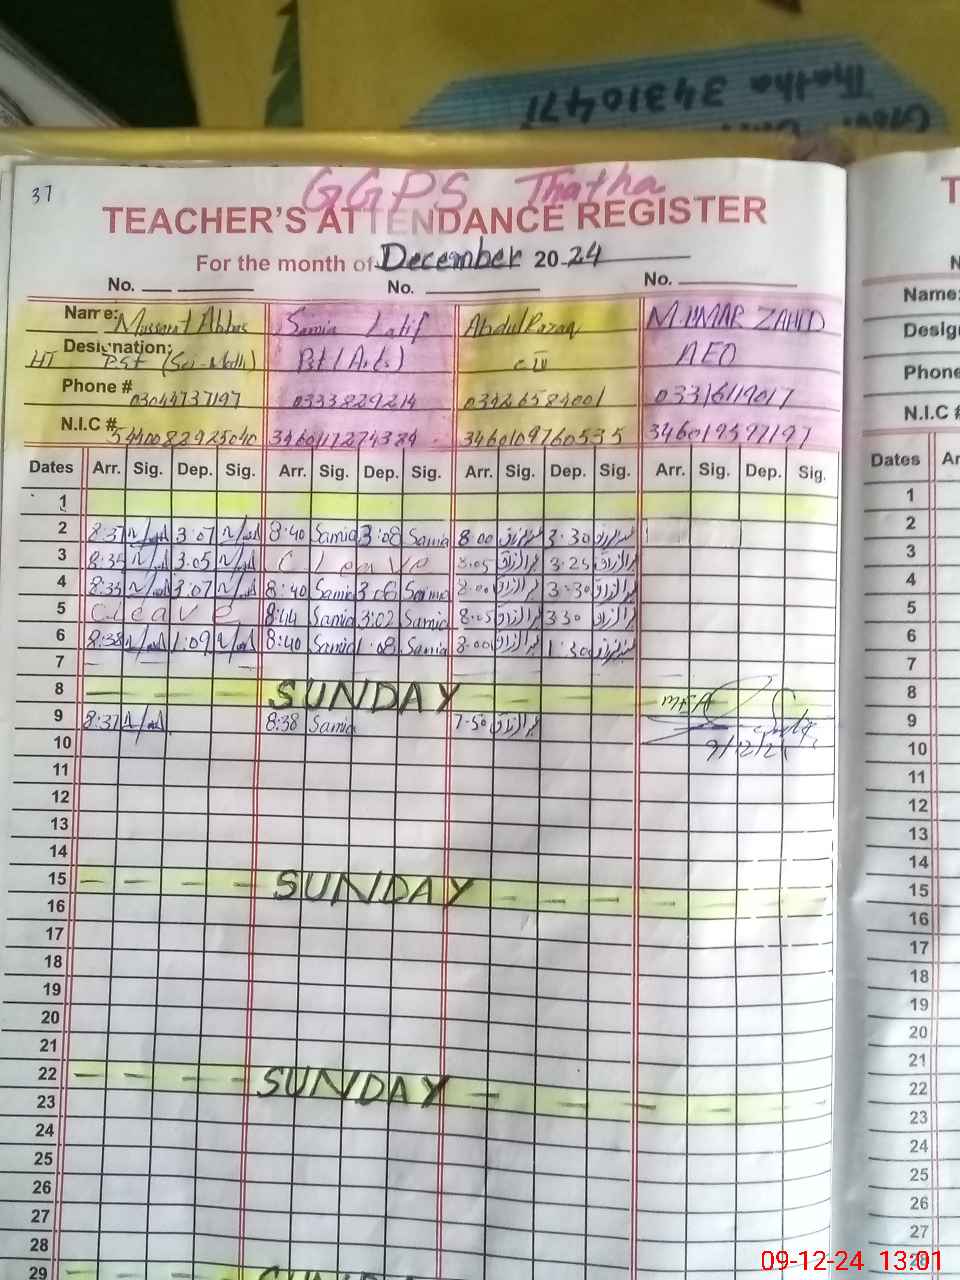 Thatha 34310471
37
GGPS Thatha
TEACHER'S ATTENDANCE REGISTER
For the month of December 2024
No. No. No.
Name: Mussarat Abbas Samia Latif Abdul Razaq M UMAR ZAHID
Designation: HT PST (Sci-Math) Pst (Arts) C IV AEO
Phone # 03044737197 0333829214 03426584001 03316119017
N.I.C # 3460112274384 3460109760535 346019597197
Dates Arr. Sig. Dep. Sig. Arr. Sig. Dep. Sig. Arr. Sig. Dep. Sig. Arr. Sig. Dep. Sig.
1
2 8:37 3:07 8:40 Samia 3:08 Samia 8:00 عبدالرزاق 3:30 عبدالرزاق
3 8:35 3:05 C Leave 8:05 عبدالرزاق 3:25 عبدالرزاق
4 8:35 3:07 8:40 Samia 3:06 Samia 8:00 عبدالرزاق 3:30 عبدالرزاق
5 C leave 8:44 Samia 3:02 Samia 8:05 عبدالرزاق 3 30 عبدالرزاق
6 8:38 1:09 8:40 Samia 1:08 Samia 8:00 عبدالرزاق 1:30 عبدالرزاق
7
8 SUNDAY
9 8:37 8:38 Samia 7-50 عبدالرزاق
10
11
12
13
14
15 SUNDAY
16
17
18
19
20
21
22 SUNDAY
23
24
25
26
27
28
29 SUNDAY
Name:
Desig
Phone
N.I.C #
Dates Ar
1
2
3
4
5
6
7
8
9
10
11
12
13
14
15
16
17
18
19
20
21
22
23
24
25
26
27
28
09-12-24 13:01